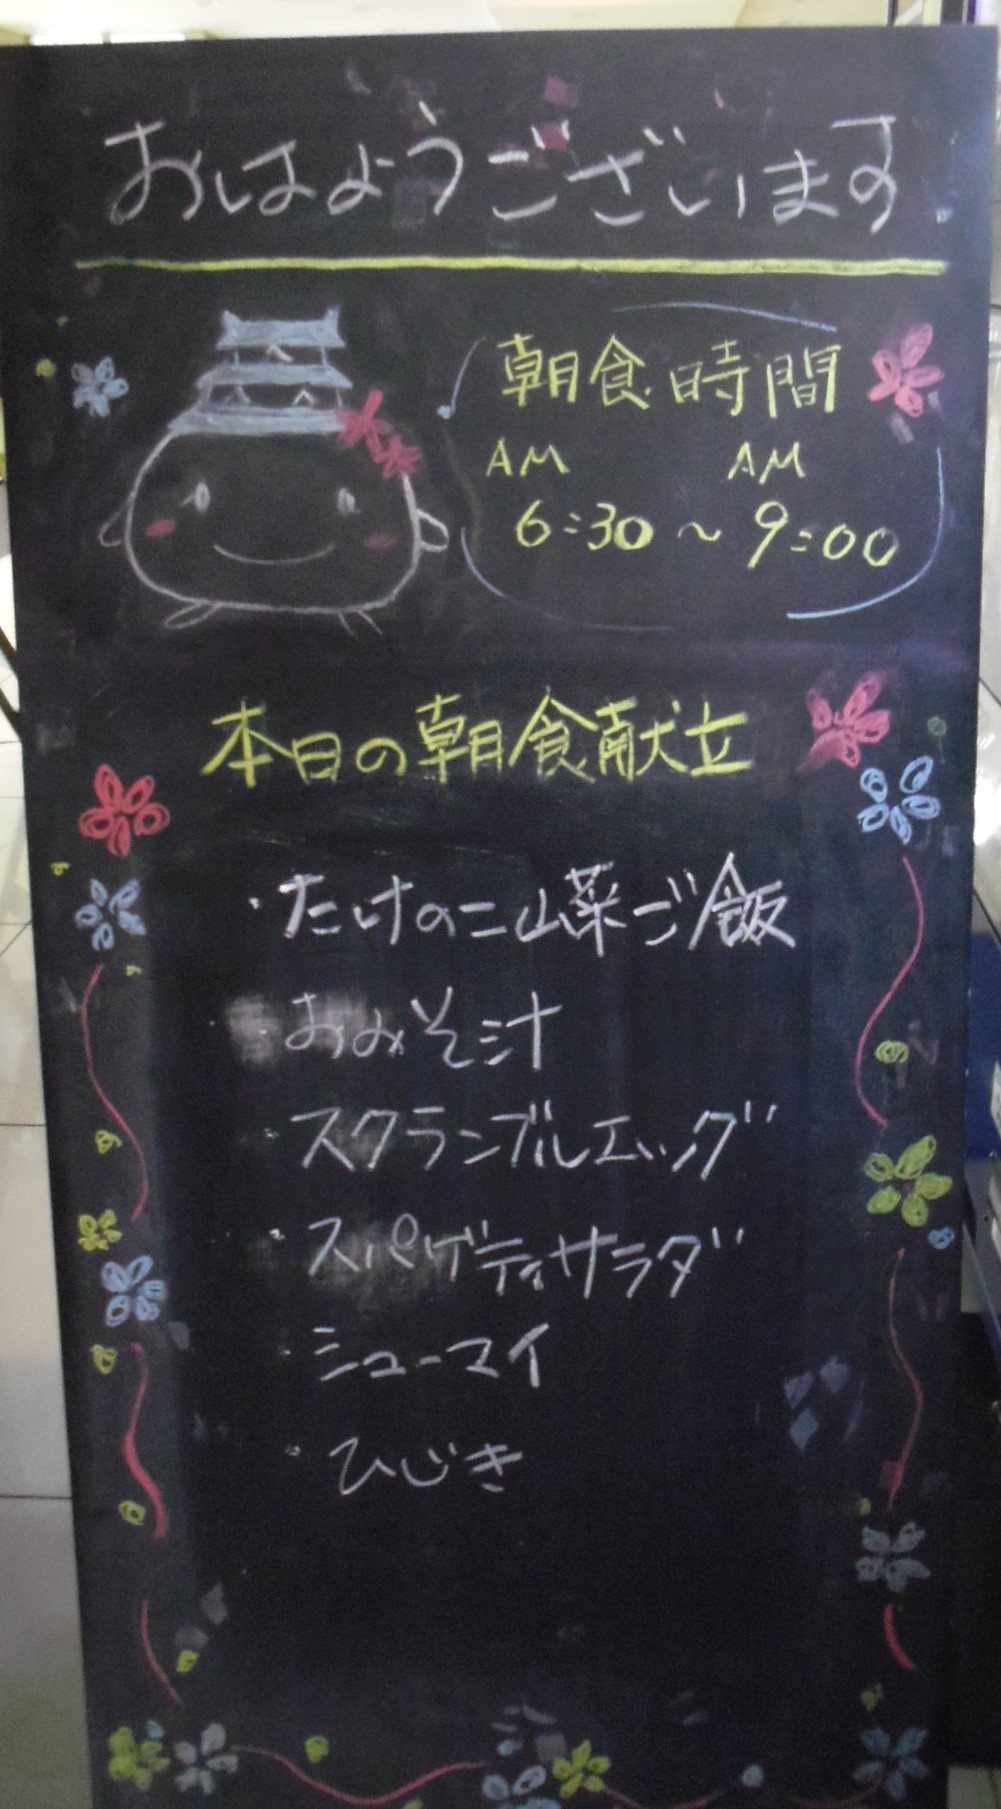 おはようございます
朝食時間
AM AM
6:30～9:00
本日の朝食献立
・たけのこ山菜ご飯
・おみそ汁
・スクランブルエッグ
・スパゲティサラダ
・シューマイ
・ひじき